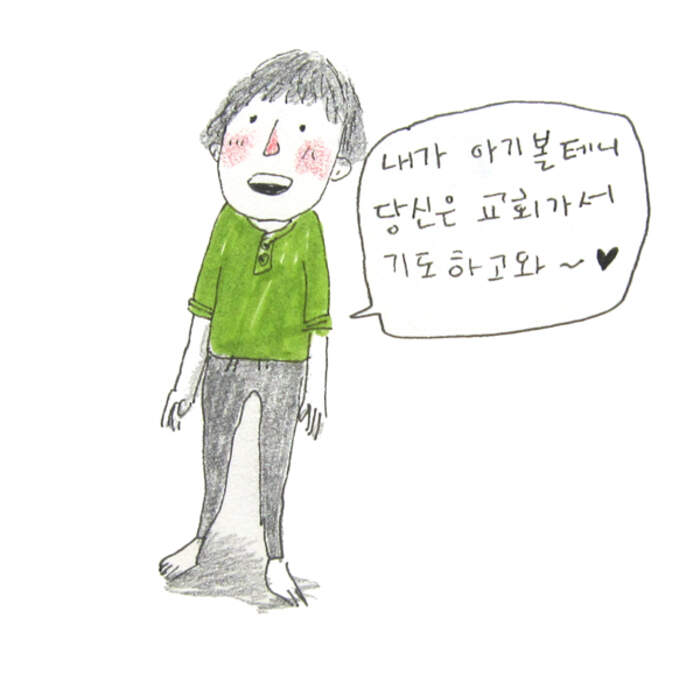 내가 아기볼테니
당신은 교회가서
기도하고와~♥